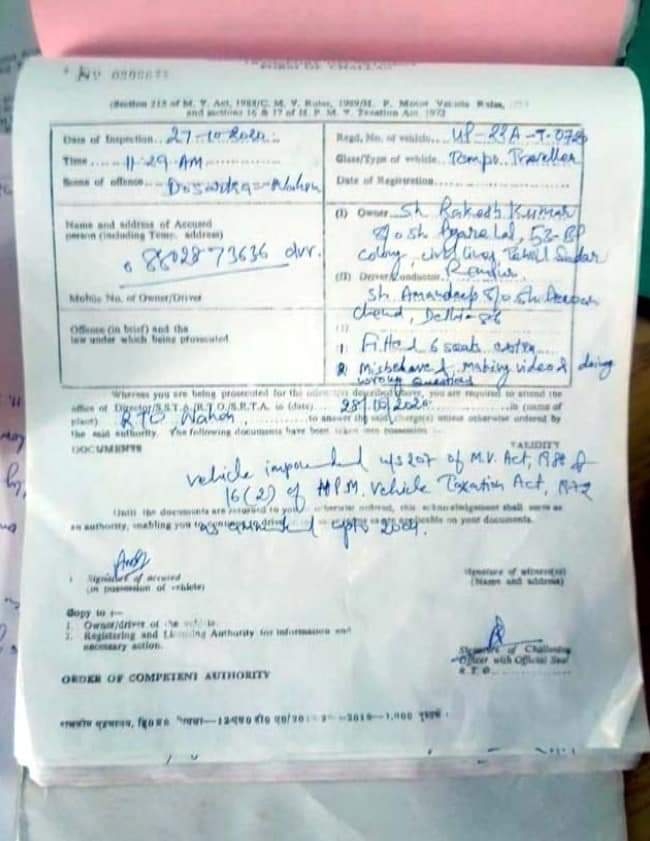 (Section 213 of M. V. Act, 1988/C. M. V. Rules, 1989/H. P. Motor Vehicle Rules,
and sections 16 & 17 of H. P. M. V. Taxation Act, 1972)
Date of Inspection 27-10-2020
Time 11-29 AM
Name of offence
Regd. No. of vehicle UP-
Class/Type of vehicle Tempo Traveller
Date of Registration
Name and address of Accused
person (including Temp. address)
8802873636 dvr.
Mobile No. of Owner/Driver
(I) Owner Sh Rakesh Kumar
S/o Sh Pyare Lal, 53-
colony, civil lines, Tehsil Sadar
(II) Driver/Conductor
Sh. Amardeep S/o Sh.
Chand, Delhi-
Offence (in brief) and the
law under which being prosecuted
1 Fitted 6 seats extra
2 Misbehaved, making video & doing
wrong questions
Whereas you are being prosecuted for the described above, you are required to attend the
office of Director/S.T.A./R.T.O./S.R.T.A. in (date) 28/10/2020 in (name of
place) RTO Nahan to answer the said charge(s) unless otherwise ordered by
the said authority. The following documents have been taken into possession
DOCUMENTS VALIDITY
vehicle impounded u/s 207 of M.V. Act, 1988 &
16(2) of HP M. Vehicle Taxation Act, 1972
Until the documents are returned to you otherwise ordered, this acknowledgement shall serve as
an authority, enabling you applicable on your documents.
as amended upto
Signature of accused
(in possession of vehicle)
Signature of witness(es)
(Name and address)
Copy to :—
1. Owner/driver of the vehicle.
2. Registering and Licensing Authority for information and
necessary action.
Signature of Challaning
Officer with Official Seal
R.T.O.
ORDER OF COMPETENT AUTHORITY